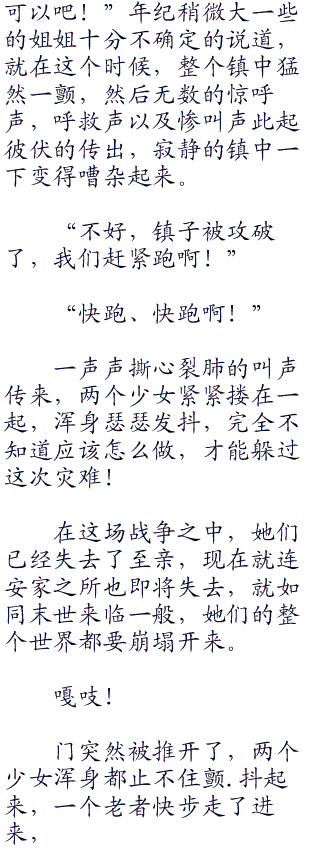 可以吧！”年纪稍微大一些
的姐姐十分不确定的说道，
就在这个时候，整个镇中猛
然一颤，然后无数的惊呼
声，呼救声以及惨叫声此起
彼伏的传出，寂静的镇中一
下变得嘈杂起来。
“不好，镇子被攻破
了，我们赶紧跑啊！”
“快跑、快跑啊！”
一声声撕心裂肺的叫声
传来，两个少女紧紧搂在一
起，浑身瑟瑟发抖，完全不
知道应该怎么做，才能躲过
这次灾难！
在这场战争之中，她们
已经失去了至亲，现在就连
安家之所也即将失去，就如
同末世来临一般，她们的整
个世界都要崩塌开来。
嘎吱！
门突然被推开了，两个
少女浑身都止不住颤.抖起
来，一个老者快步走了进
来，